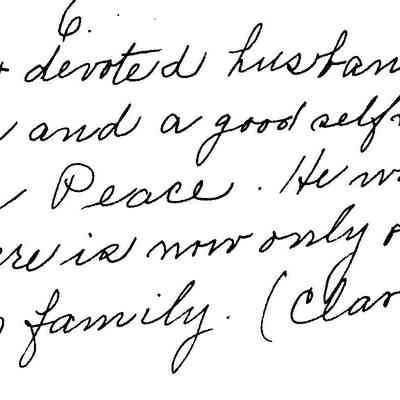 6.
devoted husban
and a good self
Peace. He w
ere is now only
family. (Clar